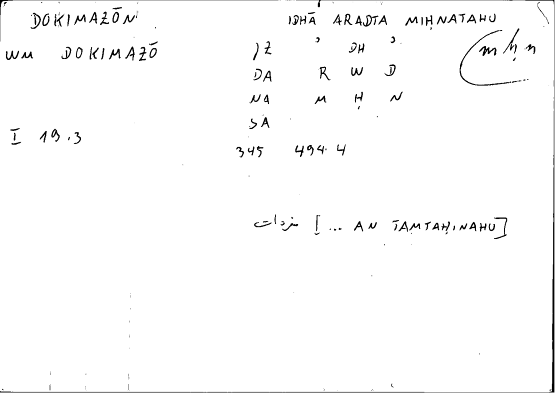 DOKIMAZŌN IDHĀ ARADTA MIḤNATAHU
WM DOKIMAZŌ ṢZ ʾ DH ʾ mḥn
DA R W D
NA M Ḥ N
SA
I 19.3
345 494.4
[... AN TAMTAḤINAHU]